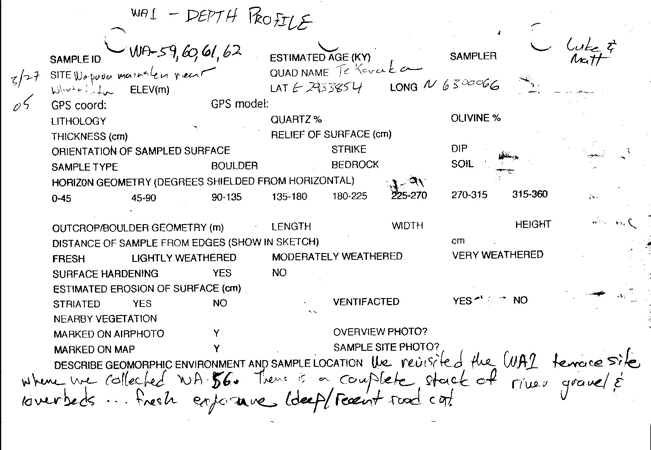 WA1 - DEPTH PROFILE
SAMPLE ID WA-59,60,61,62 ESTIMATED AGE (KY) SAMPLER Luke & Matt
3/27 SITE near QUAD NAME Te Karaka
ELEV(m) LAT E 2933854 LONG N 6300066
05 GPS coord: GPS model:
LITHOLOGY QUARTZ % OLIVINE %
THICKNESS (cm) RELIEF OF SURFACE (cm)
ORIENTATION OF SAMPLED SURFACE STRIKE DIP
SAMPLE TYPE BOULDER BEDROCK SOIL
HORIZON GEOMETRY (DEGREES SHIELDED FROM HORIZONTAL)
0-45 45-90 90-135 135-180 180-225 225-270 270-315 315-360
OUTCROP/BOULDER GEOMETRY (m) LENGTH WIDTH HEIGHT
DISTANCE OF SAMPLE FROM EDGES (SHOW IN SKETCH) cm
FRESH LIGHTLY WEATHERED MODERATELY WEATHERED VERY WEATHERED
SURFACE HARDENING YES NO
ESTIMATED EROSION OF SURFACE (cm)
STRIATED YES NO VENTIFACTED YES NO
NEARBY VEGETATION
MARKED ON AIRPHOTO Y OVERVIEW PHOTO?
MARKED ON MAP Y SAMPLE SITE PHOTO?
DESCRIBE GEOMORPHIC ENVIRONMENT AND SAMPLE LOCATION We revisited the WA1 terrace site
where we collected WA-56. There is a complete stack of river gravel &
overbeds ... fresh exposure (deep/recent road cut